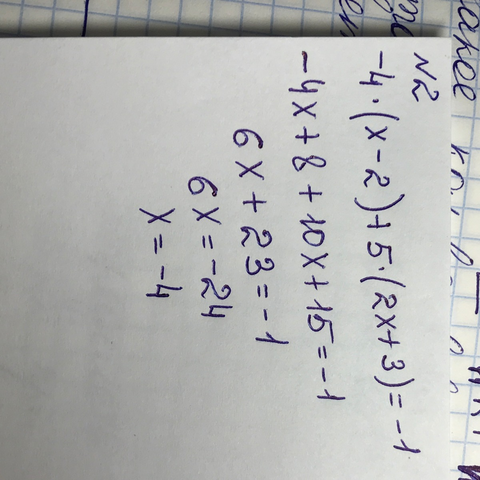 N2
-4·(x-2)+5·(2x+3)=-1
-4x+8+10x+15=-1
6x+23=-1
6x=-24
x=-4